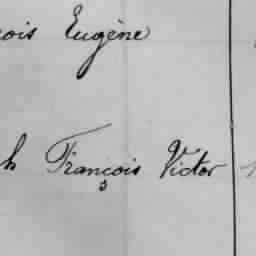 ois Eugène
h François Victor